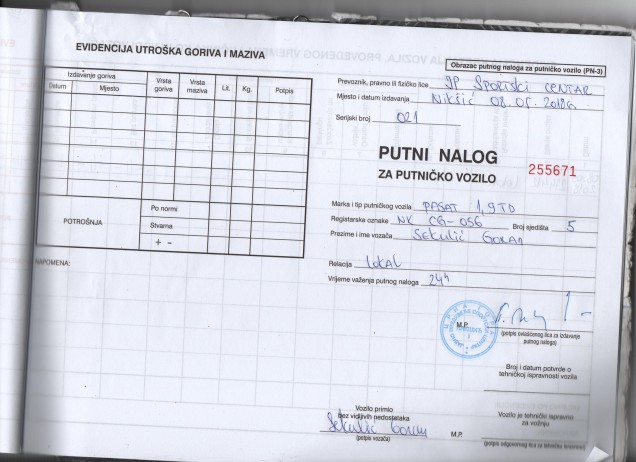 EVIDENCIJA UTROŠKA GORIVA I MAZIVA
Izdavanje goriva
Datum
Mjesto
Vrsta goriva
Vrsta maziva
Lit.
Kg.
Potpis
POTROŠNJA
Po normi
Stvarna
+ -
NAPOMENA:
Obrazac putnog naloga za putničko vozilo (PN-3)
Prevoznik, pravno ili fizičko lice JP SPORTSKI CENTAR
Mjesto i datum izdavanja Nikšić 08.05.2018G
Serijski broj 021
PUTNI NALOG
ZA PUTNIČKO VOZILO
255671
Marka i tip putničkog vozila PASAT 1,9 TD
Registarske oznake NK CG-056 Broj sjedišta 5
Prezime i ime vozača SEKULIĆ GORAN
Relacija LOKAL
Vrijeme važenja putnog naloga 24h
M.P.
(potpis ovlašćenog lica za izdavanje
putnog naloga)
Broj i datum potvrde o
tehničkoj ispravnosti vozila
Vozilo primio
bez vidljivih nedostataka
Sekulić Goran
(potpis vozača)
M.P.
Vozilo je tehnički ispravno
za vožnju
(potpis odgovornog lica za tehničku ispravnost)